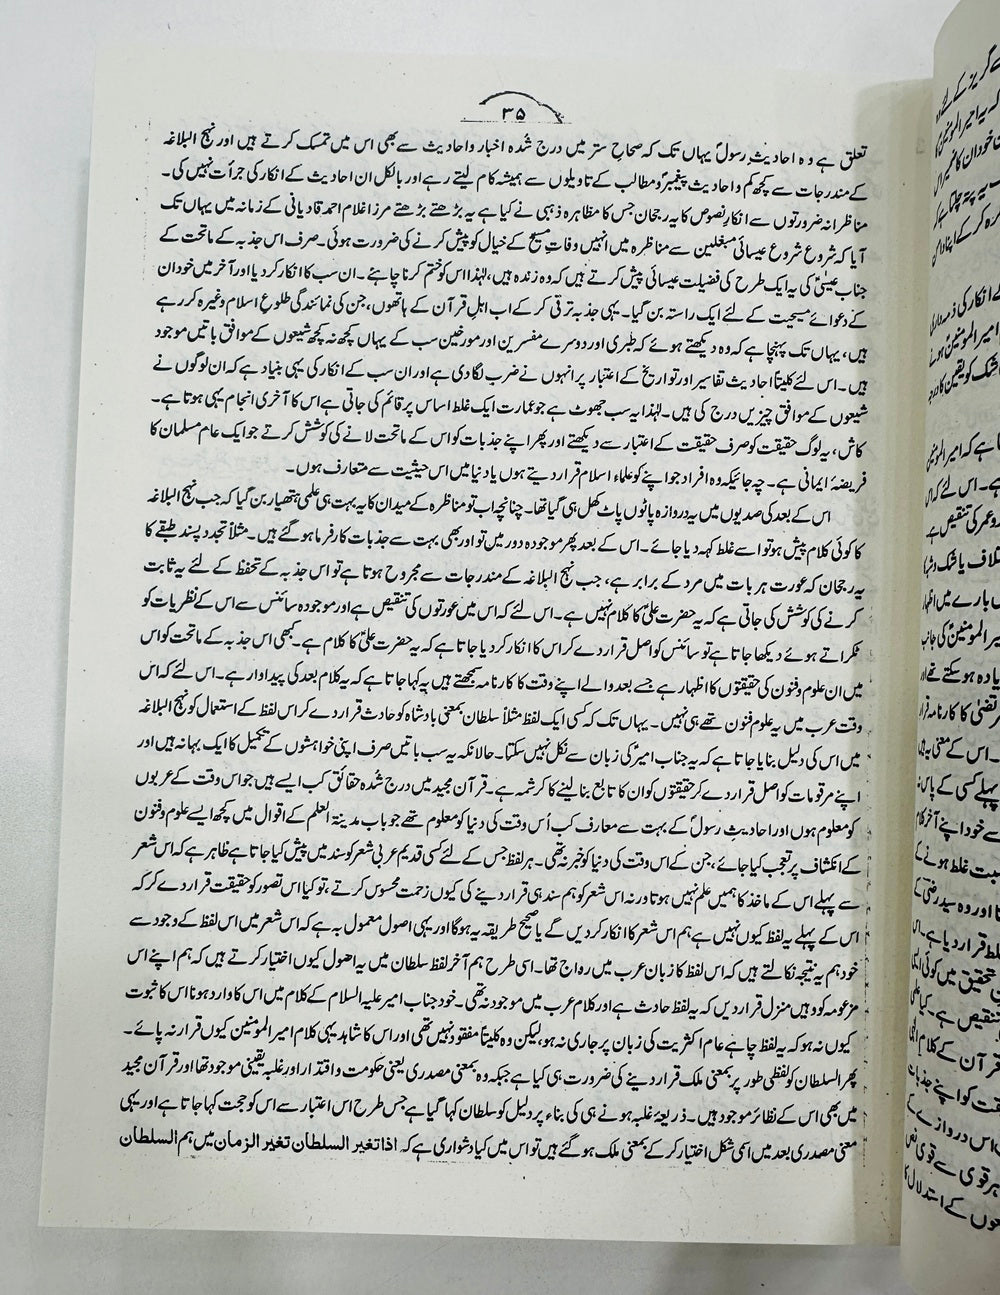 ۳۵
تعلق ہے وہ احادیثِ رسولؐ یہاں تک کہ صحاحِ ستر میں درج شُدہ اخبار و احادیث سے بھی اس میں تمسک کرتے ہیں اور نہج البلاغہ
کے مندرجات سے کچھ کم و احادیث پیغمبرؐ و مطالب کے تاویلوں سے ہمیشہ کام لیتے رہے اور بالکل ان احادیث کے انکار کی جرأت نہیں کی۔
مناظرانہ ضرورتوں سے انکارِ نصوص کا یہ رجحان جس کا مظاہرہ ذہبی نے کیا ہے یہ بڑھتے بڑھتے مرزا غلام احمد قادیانی کے زمانہ میں یہاں تک
آیا کہ شروع شروع عیسائی مبلغین سے مناظرہ میں انہیں وفاتِ مسیحؑ کے خیال کو پیش کرنے کی ضرورت ہوئی۔ صرف اس جذبہ کے ماتحت کے
جناب عیسیٰؑ کی یہ ایک طرح کی فضیلت عیسائی پیش کرتے ہیں کہ وہ زندہ ہیں، لہٰذا اس کو ختم کرنا چاہئے۔ ان سب کا انکار کر دیا اور آخر میں خود ان
کے دعوائے مسیحیت کے لئے ایک راستہ بن گیا۔ یہی جذبہ ترقی کر کے اب اہلِ قرآن کے ہاتھوں، جن کی نمائندگی طلوعِ اسلام وغیرہ کر رہے
ہیں، یہاں تک پہنچا ہے کہ وہ دیکھتے ہوئے کہ طبری اور دوسرے مفسرین اور مورخین سب کے یہاں کچھ نہ کچھ شیعوں کے موافق باتیں موجود
ہیں۔ اس لئے کلیتاً احادیث تفاسیر اور تواریخ کے اعتبار پر انہوں نے ضرب لگا دی ہے اور ان سب کے انکار کی یہی بنیاد ہے کہ ان لوگوں نے
شیعوں کے موافق چیزیں درج کی ہیں۔ لہٰذا یہ سب جھوٹ ہے جو عمارت ایک غلط اساس پر قائم کی جاتی ہے اس کا آخری انجام یہی ہوتا ہے۔
کاش، یہ لوگ حقیقت کو صرف حقیقت کے اعتبار سے دیکھتے اور پھر اپنے جذبات کو اس کے ماتحت لانے کی کوشش کرتے جو ایک عام مسلمان کا
فریضۂ ایمانی ہے۔ چہ جائیکہ وہ افراد جو اپنے کو علماء اسلام قرار دیتے ہوں یا دنیا میں اس حیثیت سے متعارف ہوں۔
اس کے بعد کی صدیوں میں یہ دروازہ پاٹوں پاٹ کھل ہی گیا تھا۔ چنانچہ اب تو مناظرہ کے میدان کا یہ بہت ہی علمی ہتھیار بن گیا کہ جب نہج البلاغہ
کا کوئی کلام پیش ہو تو اسے غلط کہہ دیا جائے۔ اس کے بعد پھر موجودہ دور میں تو اور بھی بہت سے جذبات کارفرما ہو گئے ہیں۔ مثلاً تجدد پسند طبقے کا
یہ رجحان کہ عورت ہر بات میں مرد کے برابر ہے، جب نہج البلاغہ کے مندرجات سے مجروح ہوتا ہے تو اس جذبہ کے تحفظ کے لئے یہ ثابت
کرنے کی کوشش کی جاتی ہے کہ یہ حضرت علیؑ کا کلام نہیں ہے۔ اس لئے کہ اس میں عورتوں کی تنقیص ہے اور موجودہ سائنس سے اس کے نظریات کو
ٹکراتے ہوئے دیکھا جاتا ہے تو سائنس کو اصل قرار دے کر اس کا انکار کر دیا جاتا ہے کہ یہ حضرت علیؑ کا کلام ہے۔ کبھی اس جذبہ کے ماتحت کو اس
میں ان علوم و فنون کی حقیقتوں کا اظہار ہے جسے بعد والے اپنے وقت کا کارنامہ سمجھتے ہیں یہ کہا جاتا ہے کہ یہ کلام بعد کی پیداوار ہے۔ اس لئے کہ اس
وقت عرب میں یہ علوم فنون تھے ہی نہیں۔ یہاں تک کہ کسی ایک لفظ مثلاً سلطان بمعنی بادشاہ کو حادث قرار دے کر اس لفظ کے استعمال کو نہج البلاغہ
میں اس کی دلیل بنایا جاتا ہے کہ یہ جناب امیرؑ کی زبان سے نکل نہیں سکتا۔ حالانکہ یہ سب باتیں صرف اپنی خواہشوں کے تکمیل کا ایک بہانہ ہیں اور
اپنے مرقومات کو اصل قرار دے کر حقیقتوں کو ان کا تابع بنا لینے کا کرشمہ ہے۔ قرآن مجید میں درج شُدہ حقائق کب ایسے ہیں جو اس وقت کے عربوں
کو معلوم ہوں اور احادیث رسولؐ کے بہت سے معارف کب اُس وقت کی دنیا کو معلوم تھے جو باب مدینۃ العلم کے اقوال میں کچھ ایسے علوم و فنون
کے انکشاف پر تعجب کیا جائے، جن کے اس وقت کی دنیا کو خبر نہ تھی۔ ہر لفظ جس کے لئے کسی قدیم عربی شعر کو سند میں پیش کیا جاتا ہے ظاہر ہے کہ اس شعر
سے پہلے اس کے ماخذ کا ہمیں علم نہیں ہوتا ورنہ اس شعر کو ہم سند ہی قرار دینے کی کیوں زحمت محسوس کرتے، تو کیا اس تصور کو حقیقت قرار دے کر کہ
اس کے پہلے یہ لفظ کیوں نہیں ہے ہم اس شعر کا انکار کر دیں گے یا صحیح طریقہ یہ ہو گا اور یہی اصول معمول بہ ہے کہ اس شعر میں اس لفظ کے وجود سے
خود ہم یہ نتیجہ نکالتے ہیں کہ اس لفظ کا زبان عرب میں رواج تھا۔ اسی طرح ہم آخر لفظ سلطان میں یہ اصول کیوں اختیار کرتے ہیں کہ ہم اپنے اس
مزعومہ کو وہیں منزل قرار دیں کہ یہ لفظ حادث ہے اور کلام عرب میں موجود نہ تھی۔ خود جناب امیر علیہ السلام کے کلام میں اس کا وارد ہونا اس کا ثبوت
کیوں نہ ہو کہ یہ لفظ چاہے عام اکثریت کی زبان پر جاری نہ ہو، لیکن وہ کلیتاً مفقود نہیں تھی اور اس کا شاہد یہی کلام امیر المومنین کیوں قرار نہ پائے۔
پھر السلطان کو لفظی طور پر بمعنی ملک قرار دینے کی ضرورت ہی کیا ہے جبکہ وہ بمعنی مصدری یعنی حکومت و اقتدار اور غلبہ یقینی موجود تھا اور قرآن مجید
میں بھی اس کے نظائر موجود ہیں۔ ذریعۂ غلبہ ہونے ہی کی بناء پر دلیل کو سلطان کہا گیا ہے جس طرح اس اعتبار سے اس کو حجت کہا جاتا ہے اور یہی
معنی مصدری بعد میں اسمی شکل اختیار کر کے بمعنی ملک ہو گئے ہیں تو اس میں کیا دشواری ہے کہ اذا تغیر السلطان تغیر الزمان میں ہم السلطان